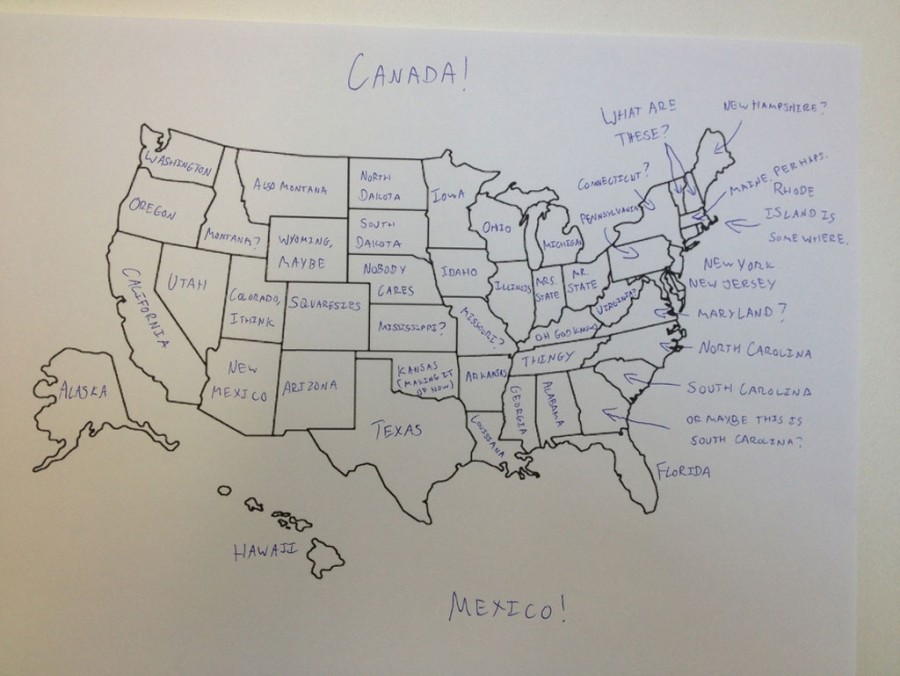 CANADA!
WHAT ARE
THESE?
NEW HAMPSHIRE?
CONNECTICUT?
MAINE, PERHAPS.
RHODE
ISLAND IS
SOMEWHERE.
PENNSYLVANIA
WASHINGTON
OREGON
MONTANA?
ALSO MONTANA
NORTH
DAKOTA
SOUTH
DAKOTA
IOWA
OHIO
MICHIGAN
WYOMING,
MAYBE
NOBODY
CARES
IDAHO
ILLINOIS
MRS.
STATE
MR.
STATE
VIRGINIA?
NEW YORK
NEW JERSEY
MARYLAND?
CALIFORNIA
UTAH
COLORADO,
I THINK
SQUARESIES
MISSISSIPI?
MISSOURI?
OH GOD KNOWS
THINGY
NORTH CAROLINA
SOUTH CAROLINA
OR MAYBE THIS IS
SOUTH CAROLINA?
NEW
MEXICO
ARIZONA
KANSAS
(MAKING IT
UP NOW)
ARKANSAS
TEXAS
LOUISIANA
GEORGIA
ALABAMA
FLORIDA
ALASKA
HAWAII
MEXICO!